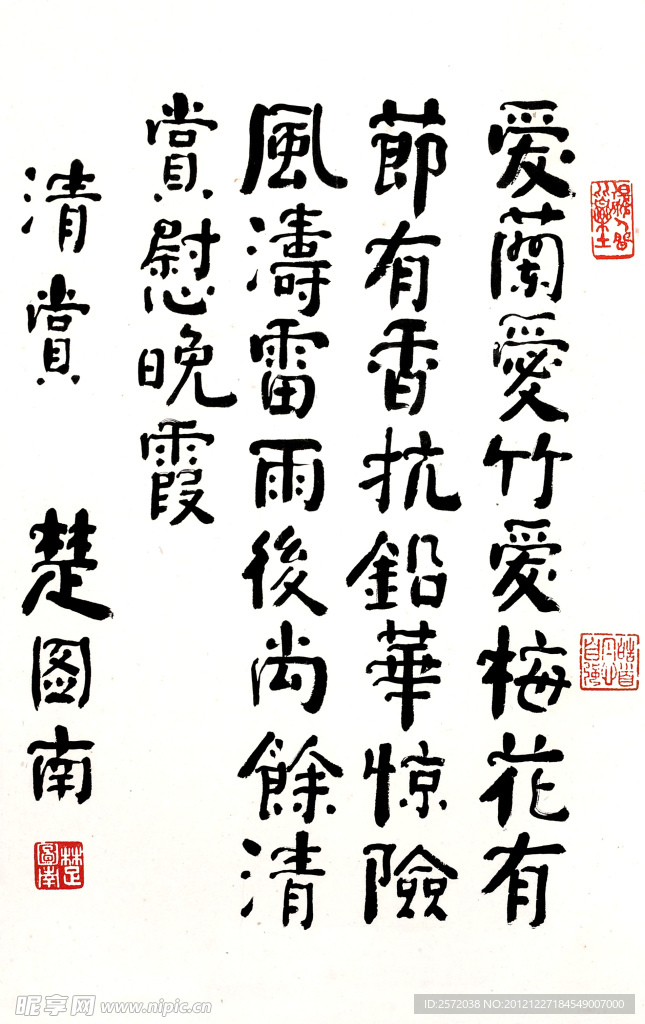 愛蘭愛竹愛梅花有
節有香抗鉛華惊險
風濤雷雨後尚餘清
賞慰晚霞
清賞 楚图南
楚圖南
昵享网 www.nipic.cn
ID:2572038 NO:20121227184549007000